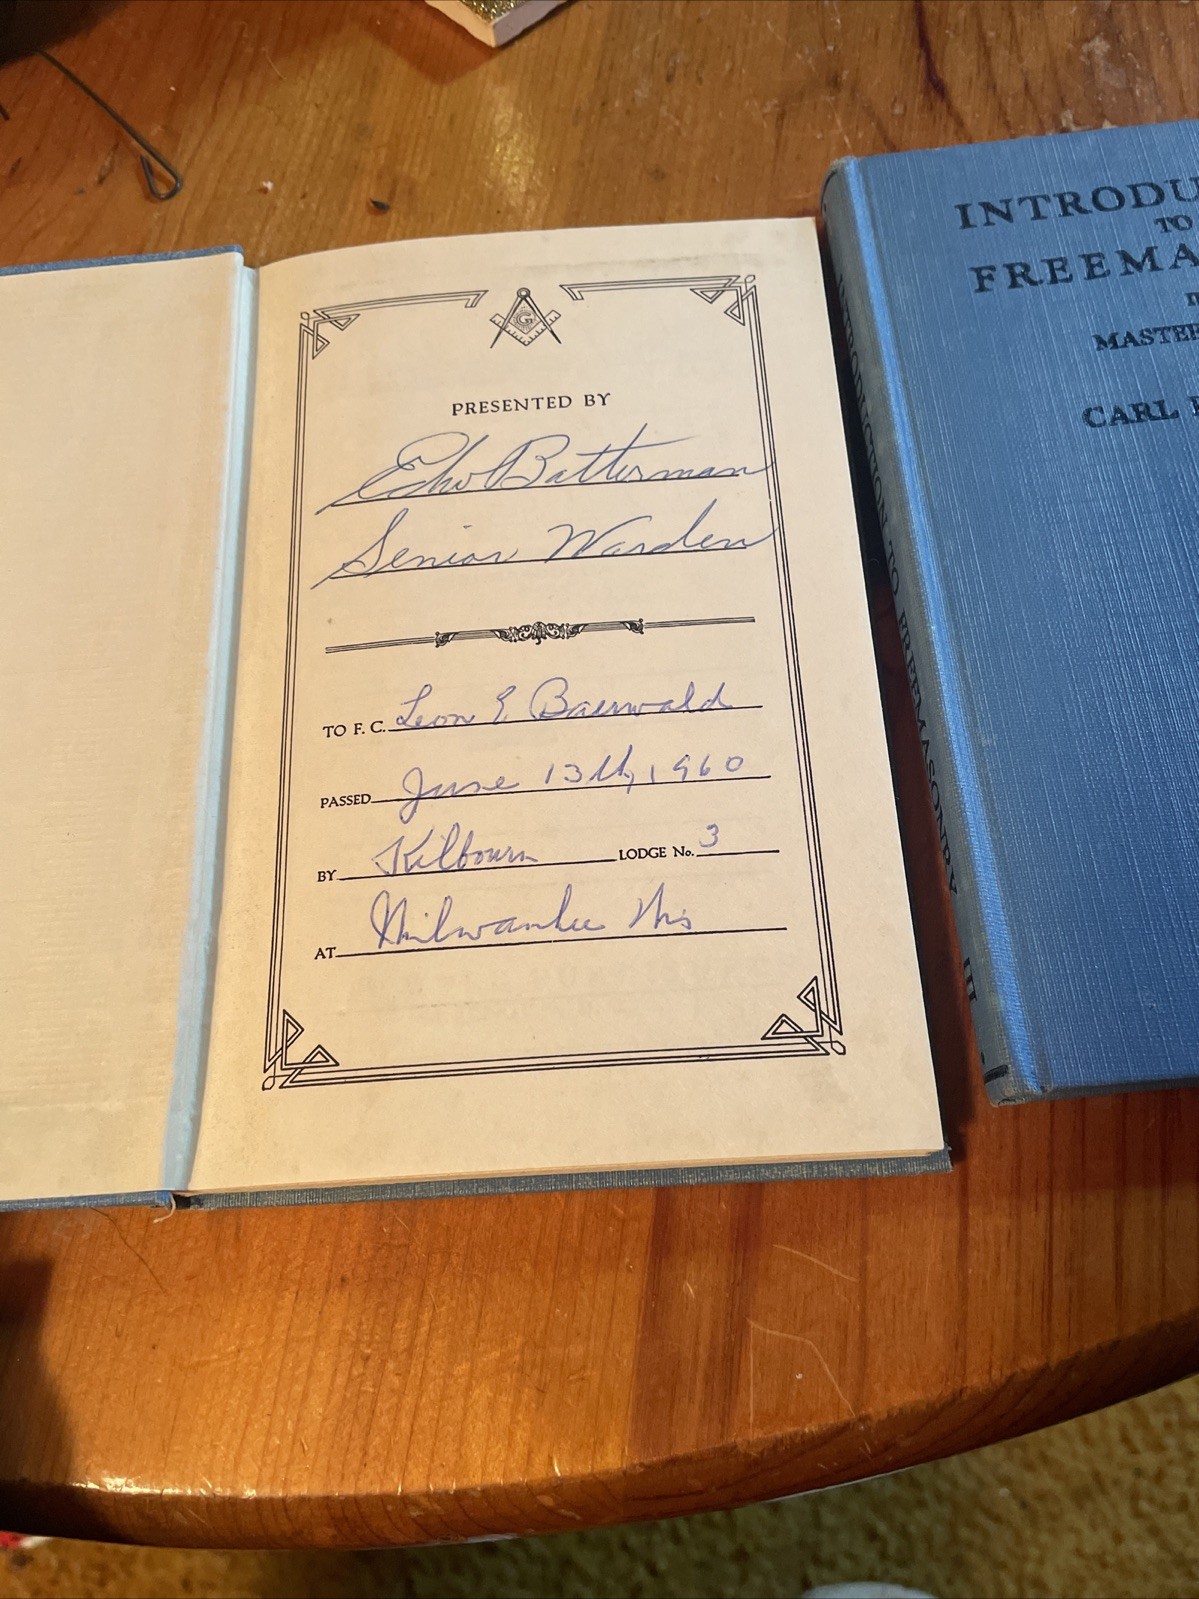 G
PRESENTED BY
Echo Batterman
Senior Warden
TO F. C. Leon E Baerwald
PASSED June 13th, 1960
BY Kilbourn LODGE No. 3
AT Milwaukee Wis
INTRODU
TO
FREEMA
MASTER
CARL
INTRODUCTION TO FREEMASONRY III